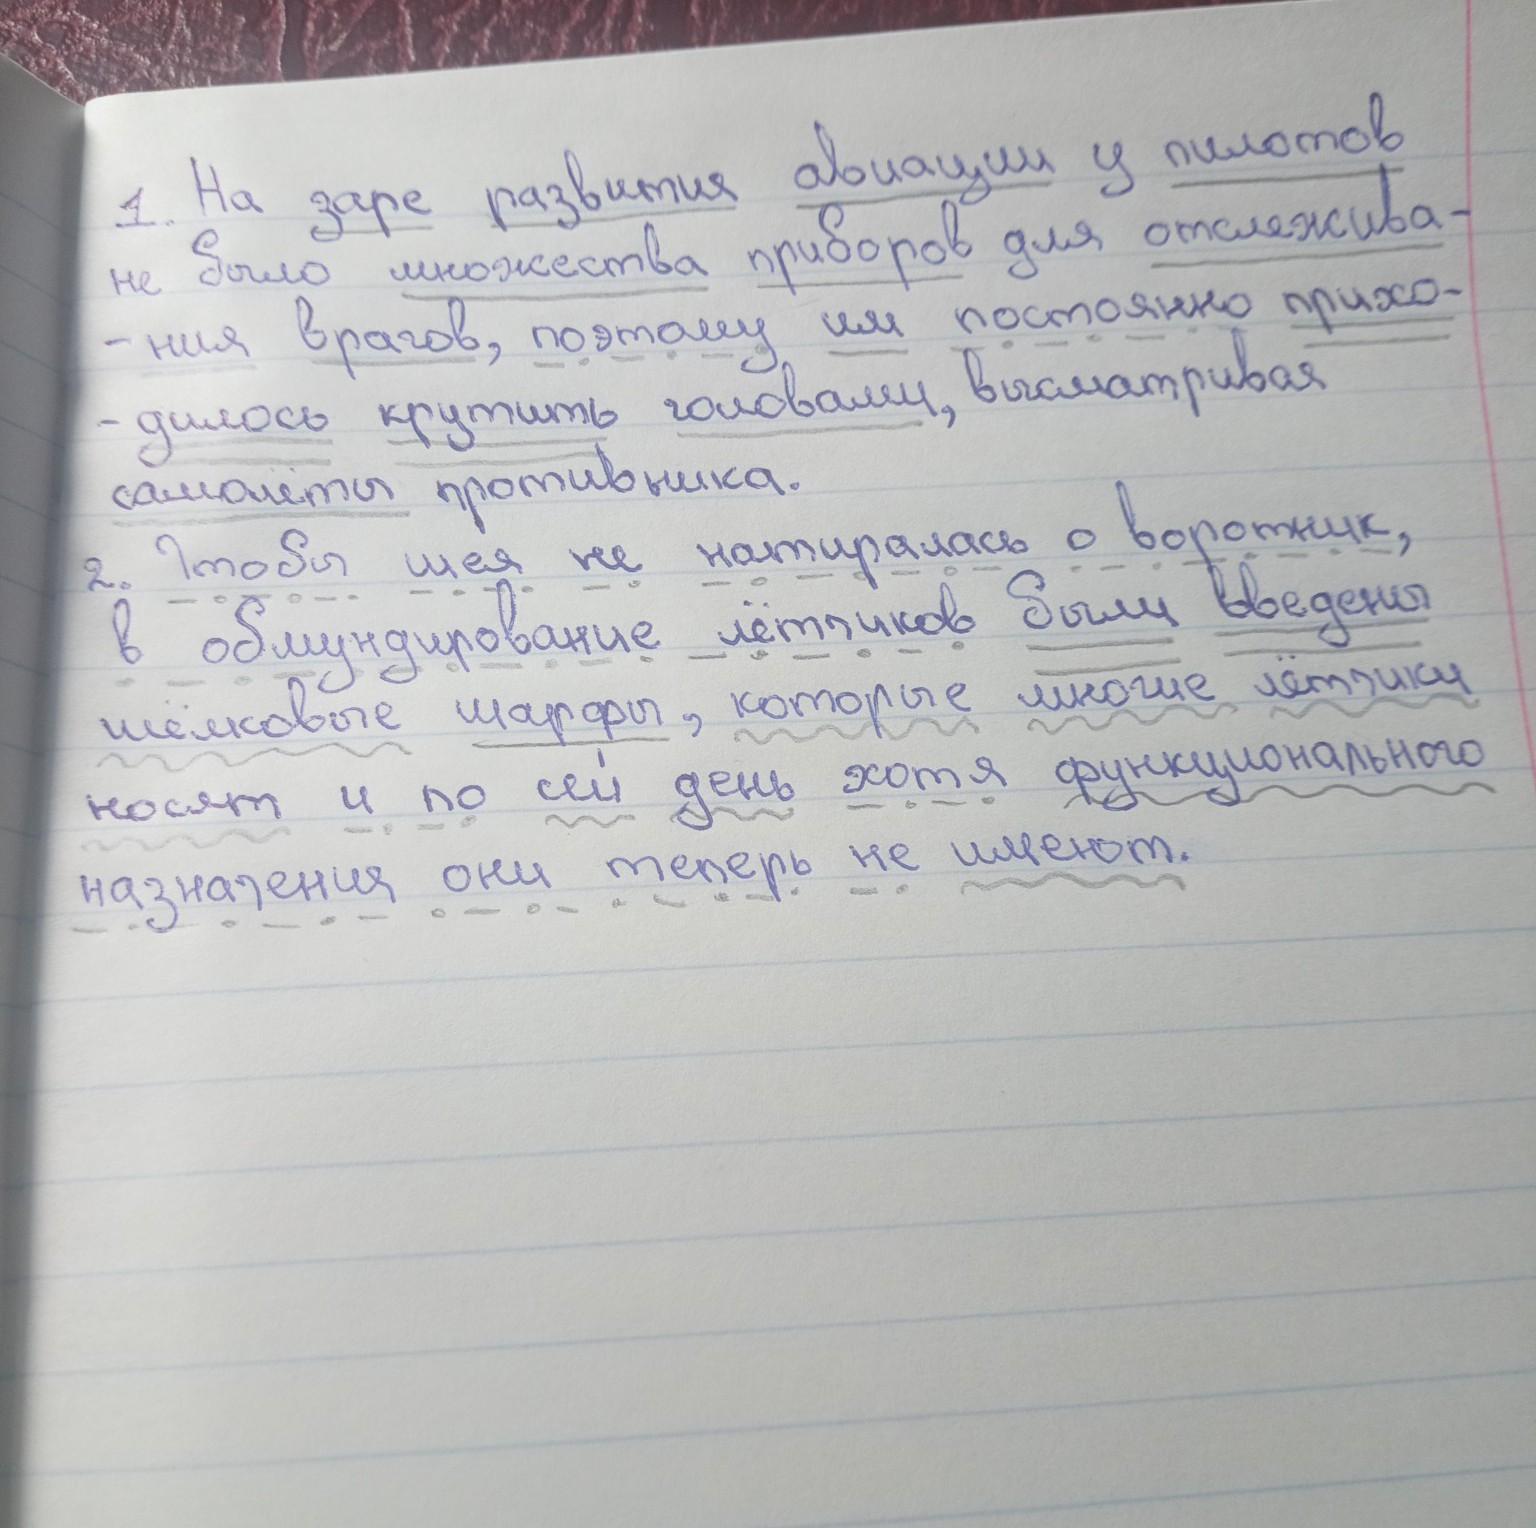 1. На заре развития авиации у пилотов
не было множества приборов для отслежива-
-ния врагов, поэтому им постоянно прихо-
-дилось крутить головами, высматривая
самолёты противника.
2. Чтобы шея не натиралась о воротник,
в обмундирование лётчиков были введены
шёлковые шарфы, которые многие лётчики
носят и по сей день хотя функционального
назначения они теперь не имеют.